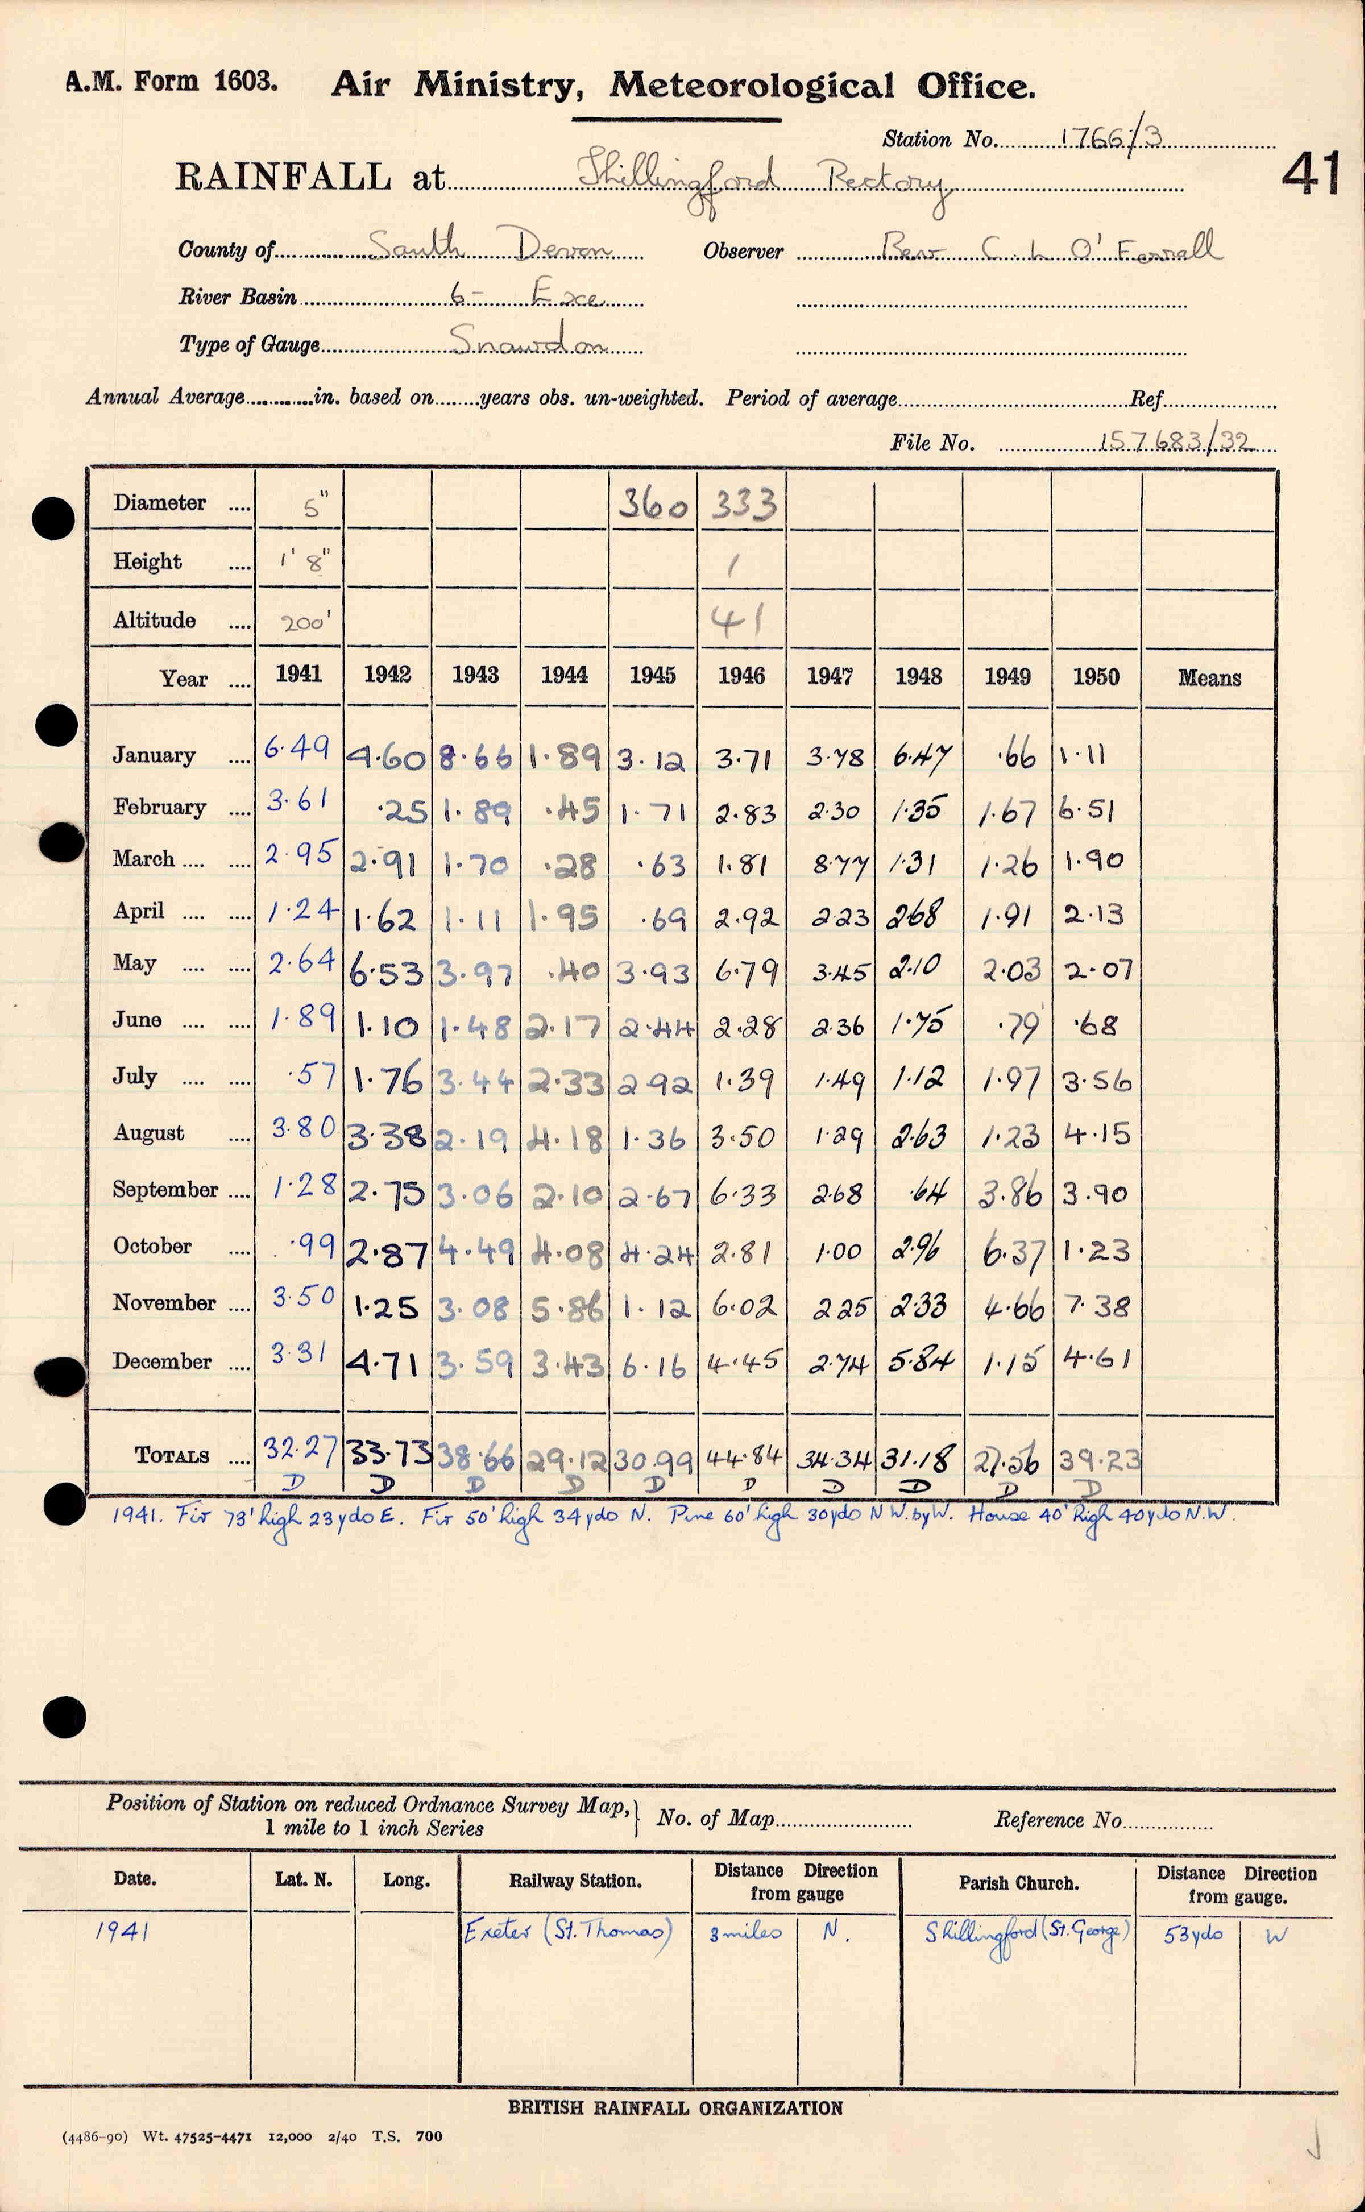 A.M. Form 1603. Air Ministry, Meteorological Office.
Station No. 1766/3
RAINFALL at Shillingford Rectory
41
County of South Devon Observer Rev C. L O'Ferrall
River Basin 6- Exe
Type of Gauge Snowdon
Annual Average............in. based on........years obs. un-weighted. Period of average.......... Ref..........
File No. 157683/32
Diameter .... 5" 360 333
Height .... 1' 8" 1
Altitude .... 200' 41
Year .... 1941 1942 1943 1944 1945 1946 1947 1948 1949 1950 Means
January .... 6.49 4.60 8.66 1.89 3.12 3.71 3.78 6.47 .66 1.11
February .... 3.61 .25 1.89 .45 1.71 2.83 2.30 1.35 1.67 6.51
March .... .... 2.95 2.91 1.70 .28 .63 1.81 8.77 1.31 1.26 1.90
April .... .... 1.24 1.62 1.11 1.95 .69 2.92 2.23 2.68 1.91 2.13
May .... .... 2.64 6.53 3.97 .40 3.93 6.79 3.45 2.10 2.03 2.07
June .... .... 1.89 1.10 1.48 2.17 2.44 2.28 2.36 1.75 .79 .68
July .... .... .57 1.76 3.44 2.33 2.92 1.39 1.49 1.12 1.97 3.56
August .... 3.80 3.38 2.19 4.18 1.36 3.50 1.29 2.63 1.23 4.15
September .... 1.28 2.75 3.06 2.10 2.67 6.33 2.68 .64 3.86 3.90
October .... .99 2.87 4.49 4.08 4.24 2.81 1.00 2.96 6.37 1.23
November .... 3.50 1.25 3.08 5.86 1.12 6.02 2.25 2.33 4.66 7.38
December .... 3.31 4.71 3.59 3.43 6.16 4.45 2.74 5.84 1.15 4.61
TOTALS .... 32.27 33.73 38.66 29.12 30.99 44.84 34.34 31.18 27.56 39.23
D D D D D D D D D D
1941. Fir 73' high 23 yds E. Fir 50' high 34 yds N. Pine 60' high 30 yds N W. by W. House 40' high 40 yds N.W.
Position of Station on reduced Ordnance Survey Map, } No. of Map.......... Reference No..........
1 mile to 1 inch Series
Date. Lat. N. Long. Railway Station. Distance Direction from gauge Parish Church. Distance Direction from gauge.
1941 Exeter (St. Thomas) 3 miles N. Shillingford (St. George) 53 yds W
BRITISH RAINFALL ORGANIZATION
(4486-90) Wt. 47525-4471 12,000 2/40 T.S. 700